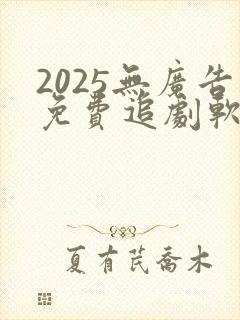 2025無廣告
免費追劇軟
夏有芪喬木